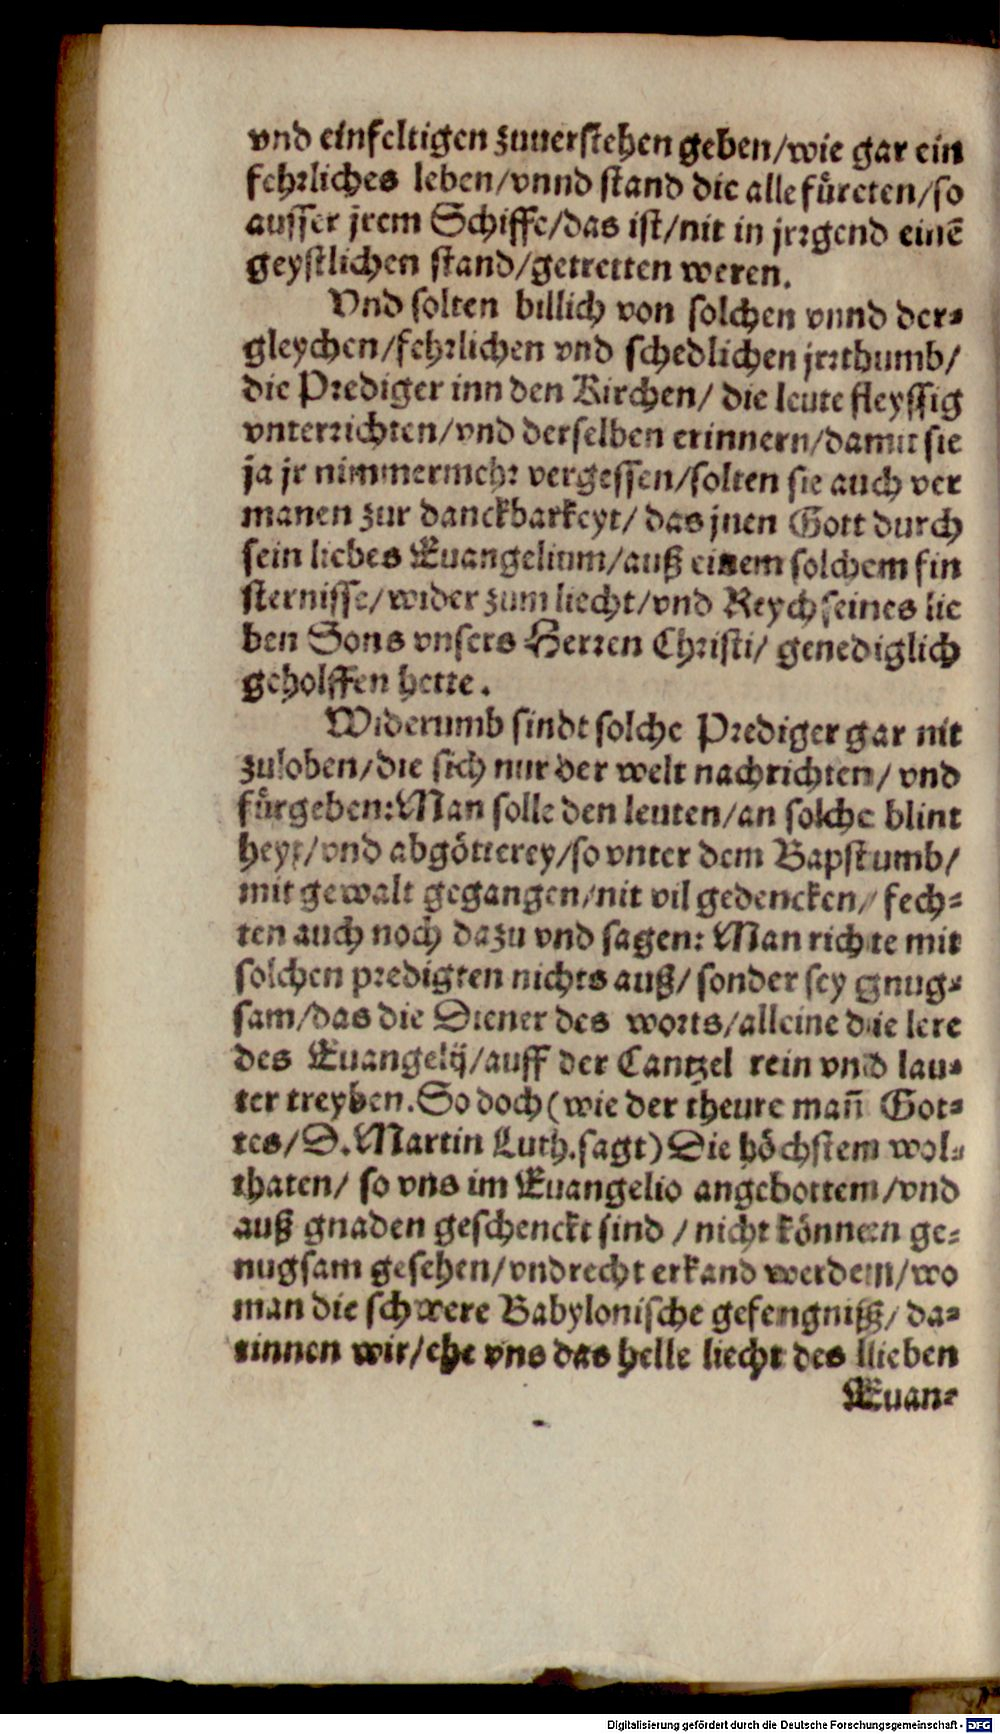 vnd einfeltigen zuuerstehen geben/wie gar ein
fehrliches leben/vnnd stand die alle füreten/so
ausser jrem Schiffe/das ist/nit in jrrgend einē
geystlichen stand/getretten weren.
Vnd solten billich von solchen vnnd der-
gleychen/fehrlichen vnd schedlichen jrrthumb/
die Prediger inn den Kirchen/ die leute fleyssig
vnterrichten/vnd derselben erinnern/damit sie
ja jr nimmermehr vergessen/solten sie auch ver
manen zur danckbarkeyt/ das jnen Gott durch
sein liebes Euangelium/auß einem solchem fin
sternisse/wider zum liecht/vnd Reych seines lie
ben Sons vnsers Herren Christi/ genediglich
geholffen hette.
Widerumb sindt solche Prediger gar nit
zuloben/die sich nur der welt nachrichten/ vnd
fürgeben:Man solle den leuten/an solche blint
heyt/vnd abgötterey/so vnter dem Bapstumb/
mit gewalt gegangen/nit vil gedencken/ fech-
ten auch noch dazu vnd sagen: Man richte mit
solchen predigten nichts auß/ sonder sey gnug-
sam/das die Diener des worts/alleine die lere
des Euangelij/auff der Cantzel rein vnd lau-
ter treyben.So doch (wie der theure mañ Got-
tes/D.Martin Luth.sagt) Die höchstem wol-
thaten/ so vns im Euangelio angebottem/vnd
auß gnaden geschenckt sind / nicht können ge-
nugsam gesehen/vnd recht erkand werdem/wo
man die schwere Babylonische gefengniß/ da-
rinnen wir/ehe vns das helle liecht des llieben
Euan-
Digitalisierung gefördert durch die Deutsche Forschungsgemeinschaft - DFG